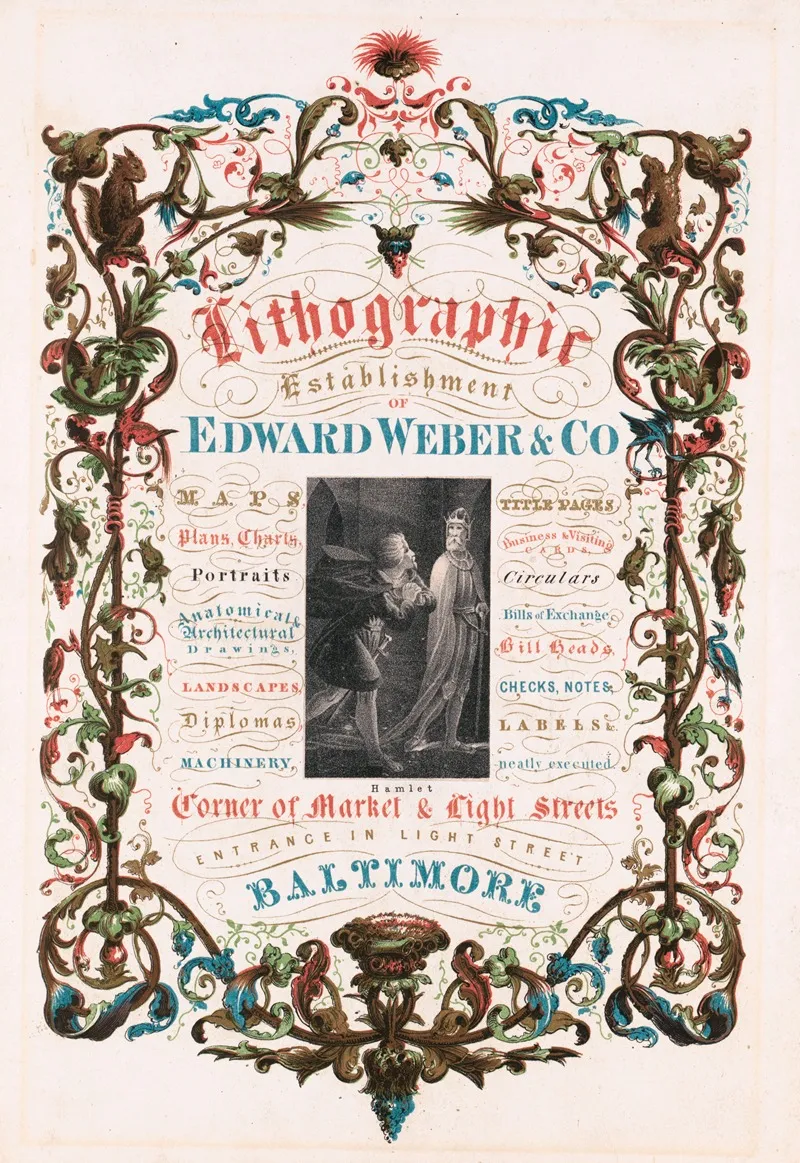 Lithographic
Establishment
OF
EDWARD WEBER & CO
MAPS,
Plans, Charts,
Portraits
Anatomical &
Architectural
Drawings,
LANDSCAPES,
Diplomas
MACHINERY,
TITLE PAGES,
Business & Visiting
CARDS,
Circulars
Bills of Exchange,
Bill Heads,
CHECKS, NOTES,
LABELS &c
neatly executed.
Hamlet
Corner of Market & Light Streets
ENTRANCE IN LIGHT STREET
BALTIMORE